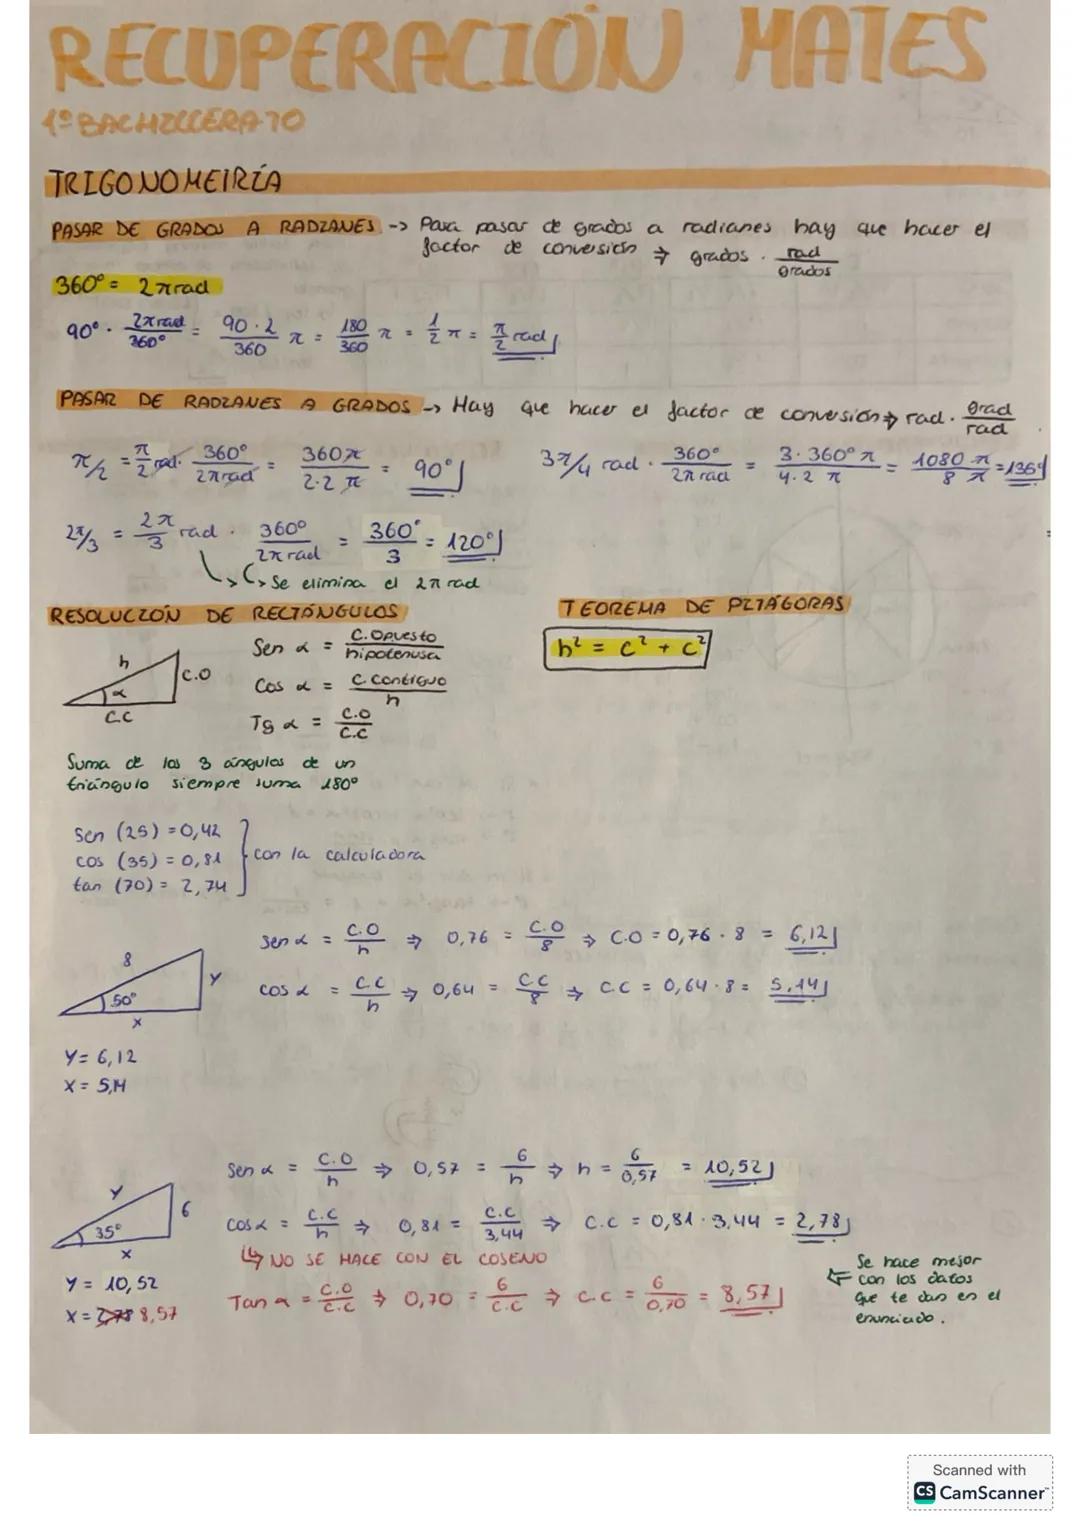 RECUPERACIÓN MATES
1º BACHILLERATO
TRIGONOMETRÍA
PASAR DE GRADOS A RADIANES -> Para pasar de grados a radianes hay que hacer el
factor de conversión ⇒ grados · rad/grados
360º = 2π rad
90º · 2π rad/360º = 90·2/360 π = 180/360 π = 1/2 π = π/2 rad
PASAR DE RADIANES A GRADOS -> Hay que hacer el factor de conversión ⇒ rad · grad/rad
π/2 = π/2 rad · 360º/2π rad = 360π/2·2π = 90º
3π/4 rad · 360º/2π rad = 3·360º π/4·2 π = 1080 π/8 π =
2π/3 = 2π/3 rad · 360º/2π rad = 360º/3 = 120º
Se elimina el 2π rad
RESOLUCIÓN DE RECTÁNGULOS
TEOREMA DE PITÁGORAS
h² = c² + c²
h
C.O
α
C.C
Sen α = C.Opuesto/hipotenusa
Cos α = C Contiguo/h
Tg α = C.O/C.C
Suma de los 3 ángulos de un
triángulo siempre suma 180º
Sen (25) = 0,42
cos (35) = 0,81
tan (70) = 2,74
con la calculadora
8
50º
y
x
sen α = C.O/h ⇒ 0,76 = C.O/8 ⇒ C.O = 0,76 · 8 = 6,12
cos α = C.C/h ⇒ 0,64 = C.C/8 ⇒ C.C = 0,64·8 = 5,14
Y = 6,12
X = 5,14
y
6
35º
x
Sen α = C.O/h ⇒ 0,57 = 6/h ⇒ h = 6/0,57 = 10,52
cos α = C.C/h ⇒ 0,81 = C.C/3,44 ⇒ C.C = 0,81 · 3,44 = 2,78
NO SE HACE CON EL COSENO
Tan α = C.O/C.C ⇒ 0,70 = 6/C.C ⇒ C.C = 6/0,70 = 8,57
Y = 10,52
X = 2,78 8,57
Se hace mejor
con los datos
que te dan en el
enunciado.
Scanned with
CS CamScanner™